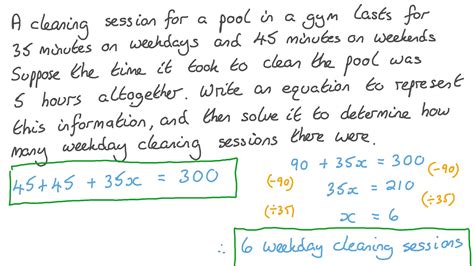 A cleaning session for a pool in a gym lasts for
35 minutes on weekdays and 45 minutes on weekends
Suppose the time it took to clean the pool was
5 hours altogether. Write an equation to represent
this information, and then solve it to determine how
many weekday cleaning sessions there were.
45+45 + 35x = 300
90 + 35x = 300
(-90) (-90)
35x = 210
(÷35) (÷35)
x = 6
∴ 6 weekday cleaning sessions